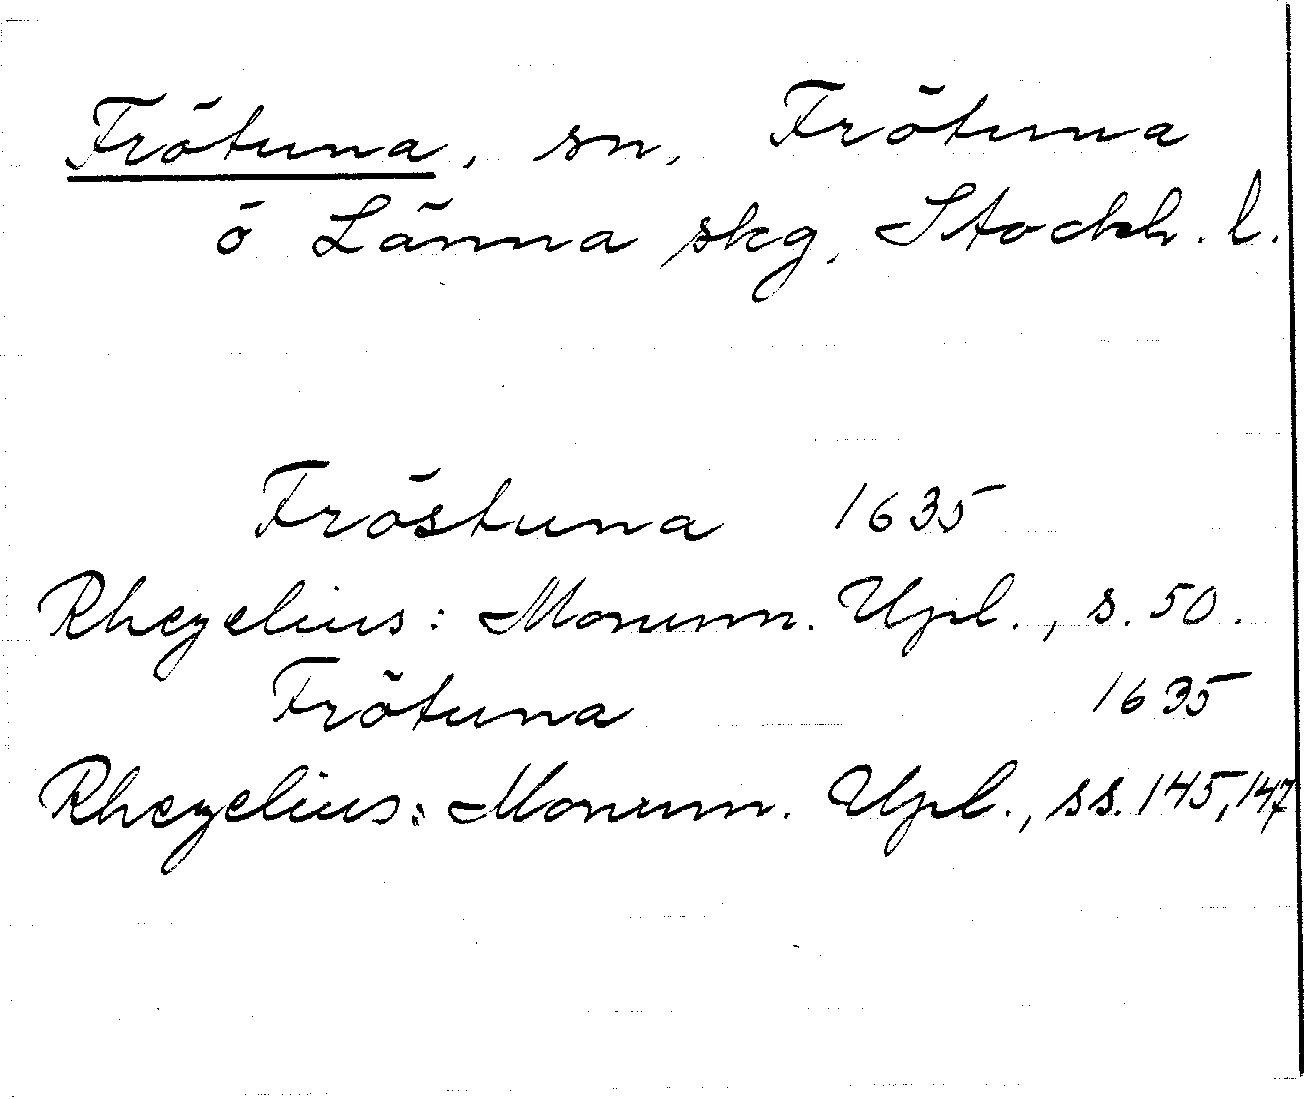 Frötuna, sn, Frötuna
o Länna skg, Stockh. l.
Fröstuna 1635
Rhezelius: Monum. Upl., s. 50.
Frötuna 1635
Rhezelius: Monum. Upl., ss. 145, 147